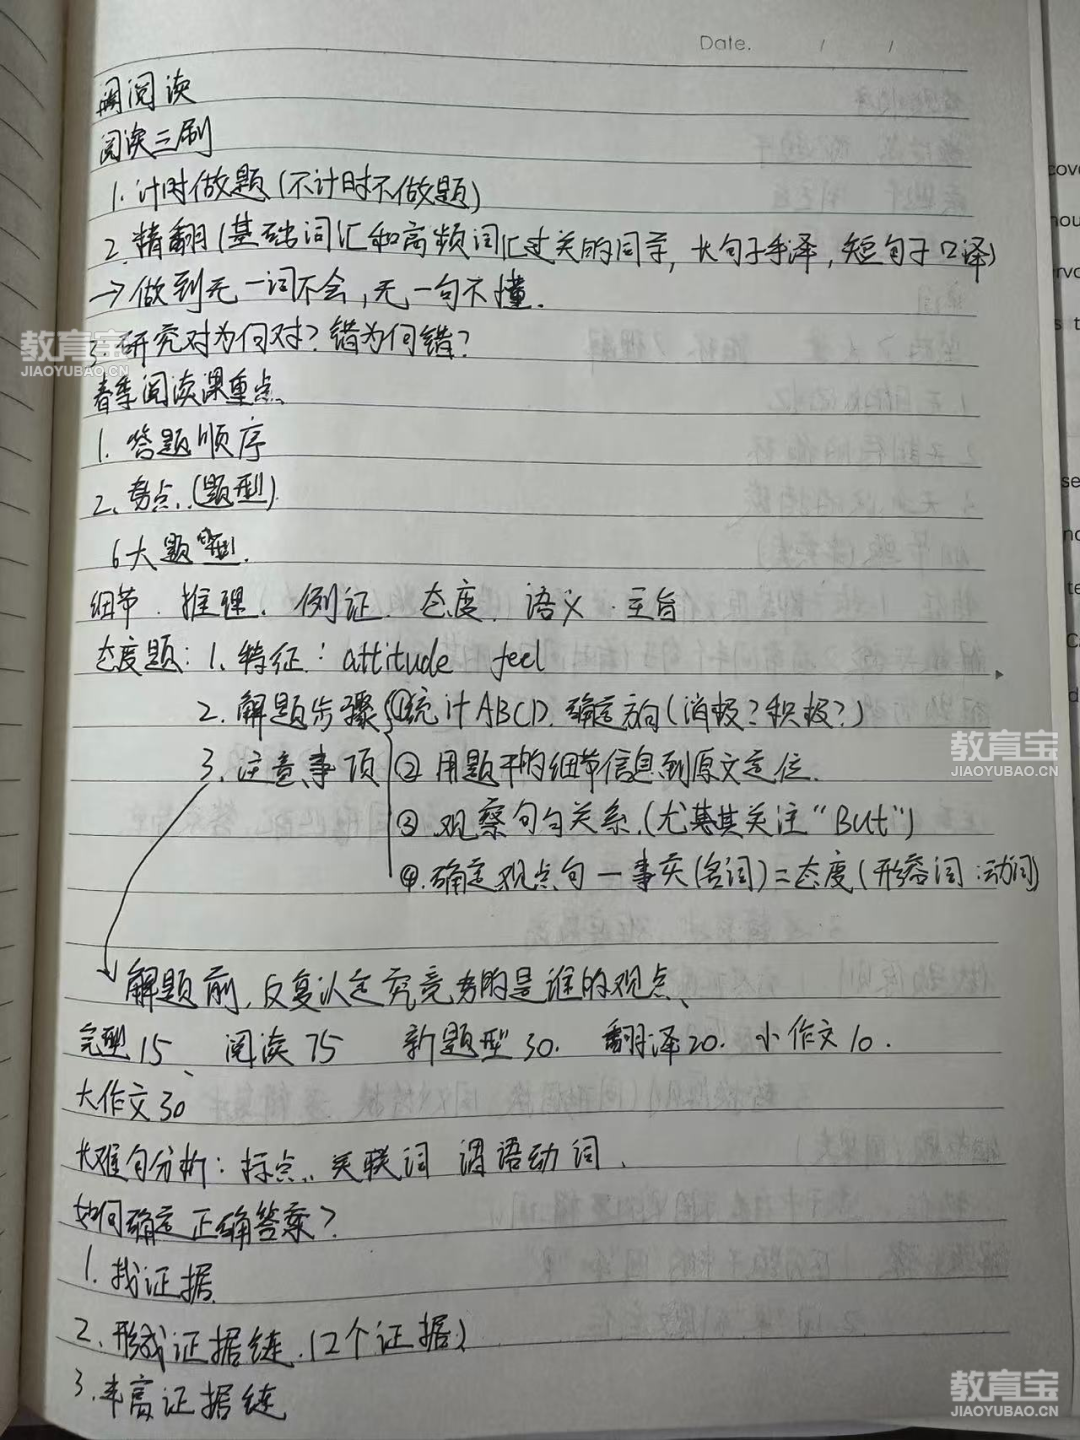 Date. / /
阅读
阅读三刷
1. 计时做题(不计时不做题)
2. 精翻(基础词汇和高频词汇过关的同学, 长句子手译, 短句子口译)
→ 做到无一词不会, 无一句不懂.
3. 研究对为何对? 错为何错?
教育宝
JIAOYUBAO.CN
春季阅读课重点.
1. 答题顺序
2. 考点.(题型)
6大题型.
细节. 推理. 例证. 态度. 语义. 主旨
态度题: 1. 特征: attitude feel
2. 解题步骤 ①统计ABCD. 确定方向(消极?积极?)
教育宝
JIAOYUBAO.CN
3. 注意事项 ②用题干的细节信息到原文定位.
③. 观察句句关系.(尤其关注"But")
④. 确定观点句 — 事实(名词) = 态度(形容词:动词)
解题前, 反复认定究竟考的是谁的观点.
完型15、 阅读75 新题型30. 翻译20. 小作文10.
大作文30
长难句分析: 标点.. 关联词 谓语动词.
如何确定正确答案?
1. 找证据
2. 形成证据链.(2个证据)
3. 丰富证据链
教育宝
JIAOYUBAO.CN